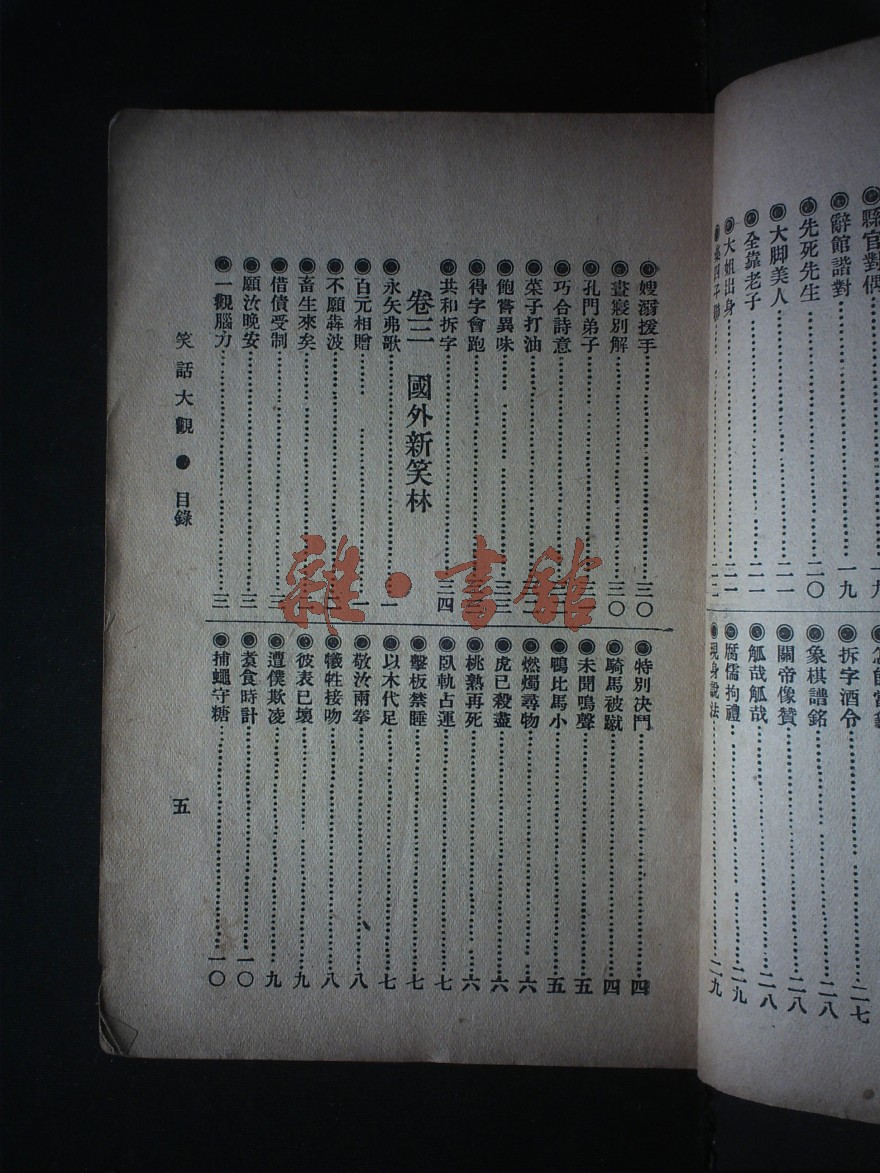 縣官對偶
辭館諧對
一九
先死先生
二〇
大脚美人
二一
全靠老子
二一
大姐出身
二一
拆字酒令
二七
象棋譜銘
二八
關帝像贊
二八
觚哉觚哉
二八
腐儒拘禮
二九
現身說法
二九
嫂溺援手
三〇
晝寢別解
三〇
孔門弟子
巧合詩意
菜子打油
飽嘗異味
得字會跑
共和拆字
三四
卷三 國外新笑林
永矢弗歌
一
百元相贈
一
不願犇波
畜生來矣
借債受制
願汝晚安
三
一觀腦力
三
特別決鬥
四
騎馬被蹴
四
未聞鳴聲
五
鴨比馬小
五
燃燭尋物
六
虎已殺盡
六
桃熟再死
六
臥軌占運
七
擊板禁睡
七
以木代足
七
敬汝兩拳
八
犧牲接吻
八
彼表已壞
九
遭僕欺凌
九
煮食時計
一〇
捕蠅守糖
一〇
笑話大觀 ● 目錄
五
雜·書館